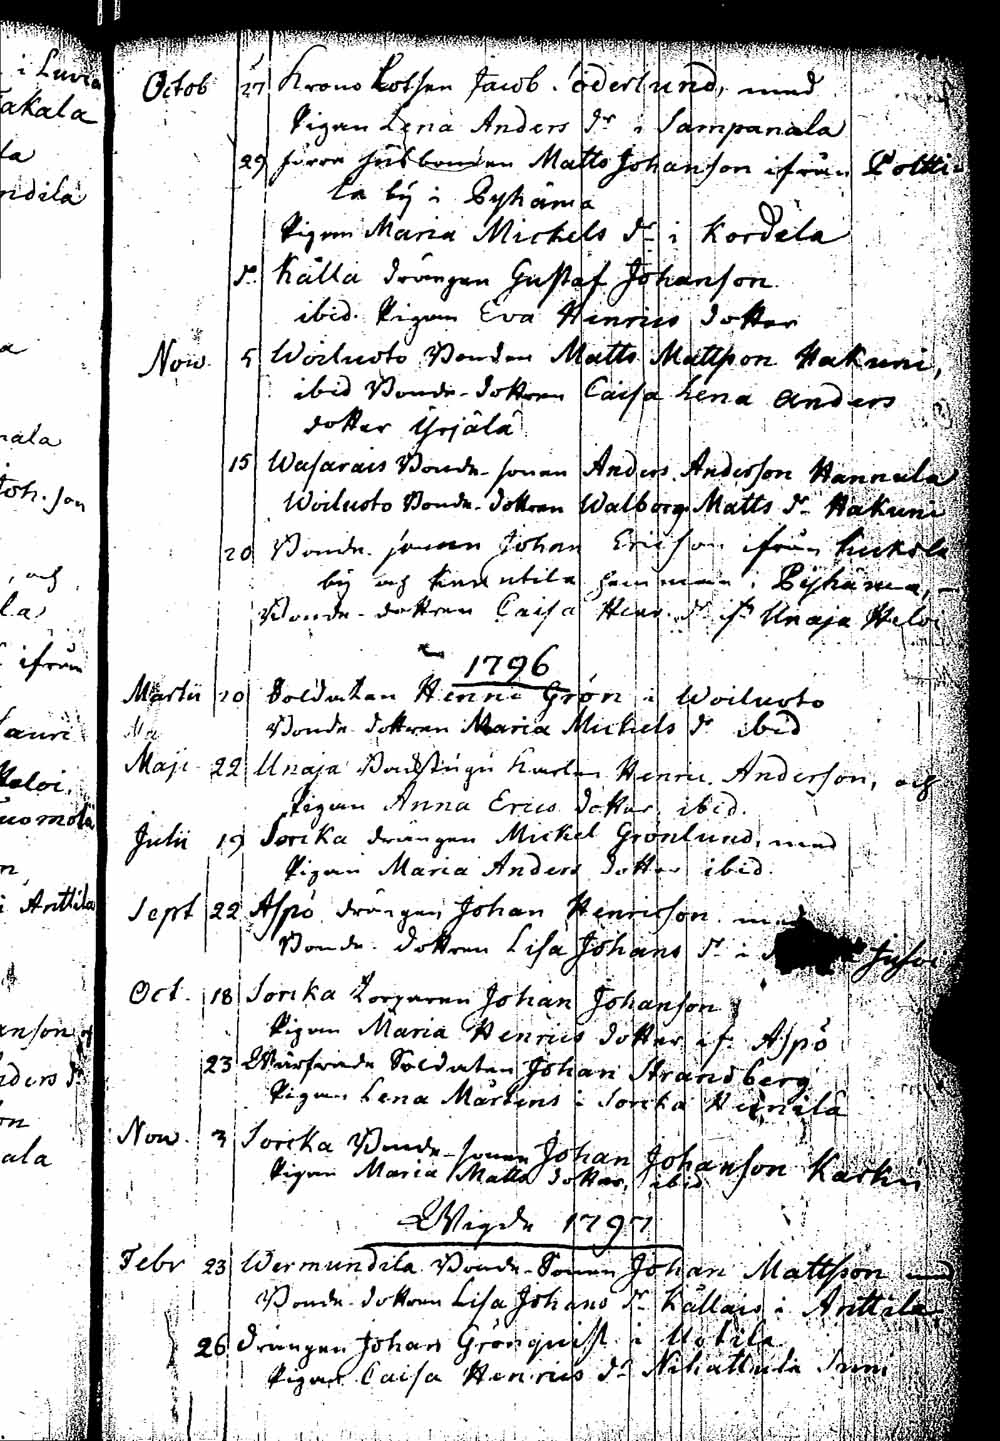 i Luvia
akala
la
ndila
a
nala
Joh. son
, och
la
ifrån
Lauri
Heloi,
uomola
n
i Anttila
anson
nders dr
on
ala
Octob 27 Krono Lotsen Jacob Söderlund, med
Pigan Lena Anders dr i Sampanala
29 förre husbonden Matts Johanson ifrån Poltti-
la bÿ i Pyhäma
Pigan Maria Michels dr i Kordela
Källa drängen Gustaf Johanson
ibid. Pigan Eva Henrics dotter
Nov 5 Woiluoto Bonden Matts Mattsson Hakuni,
ibid Bonde-dottren Caisa Lena Anders
dotter Yrjälä
15 Wasarais Bonde-sonen Anders Anderson Hannula
Woiluoto Bonde-dottren Walborg Matts dr Hakuni
20 Bonde-sonen Johan Ericson ifrån
bÿ och hemman i Pyhäma,
Bonde-dottren Caisa Henr. dr fr Unaja Heloi
1796
Martii 20 Soldaten Henric Grön i Woiluoto
Bonde-dottren Maria Michels dr ibid
Maji 22 Unaja Henric Anderson, och
Pigan Anna Erics dotter ibid.
Julii 19 Sorcka drängen Michel Grönlund, med
Pigan Maria Anders dotter ibid.
Sept 22 Aspö drängen Johan Henricson med
Bonde-dottren Lisa Johans dr i Jussi
Oct. 18 Sorcka Torparen Johan Johanson
Pigan Maria Henrics dotter af Aspö
23 Wärfvade Soldaten Johan Strandberg
Pigan Lena Mårtens i Sorcka Heinilä
Nov 3 Sorcka Bonde-sonen Johan Johanson Karhu
Pigan Maria Matts dotter, ibid
Wigde 1797
Febr 23 Wermundila Bonde-Sonen Johan Mattsson med
Bonde-dottren Lisa Johans dr Källais i Anttila
26 drängen Johan Grönquist i Uotila
Pigan Caisa Henrics dr Nihattula Suni